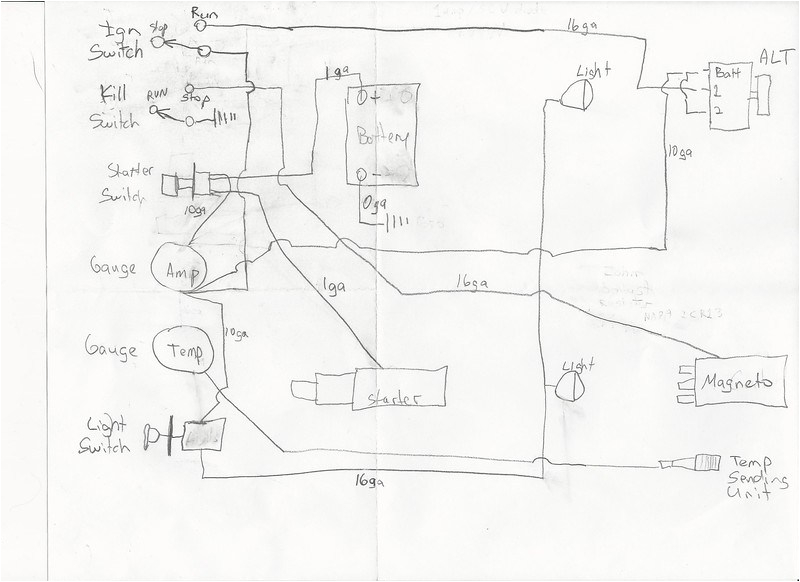 Run
Ign stop
Switch
16ga
ALT
Batt
1
2
Light
1ga
Kill RUN stop
Switch
+
Battery
-
0ga
10ga
Starter
Switch
10ga
Gauge Amp
1ga
16ga
10ga
Gauge Temp
Light
Starter
Magneto
Light
Switch
16ga
Temp
Sending
Unit